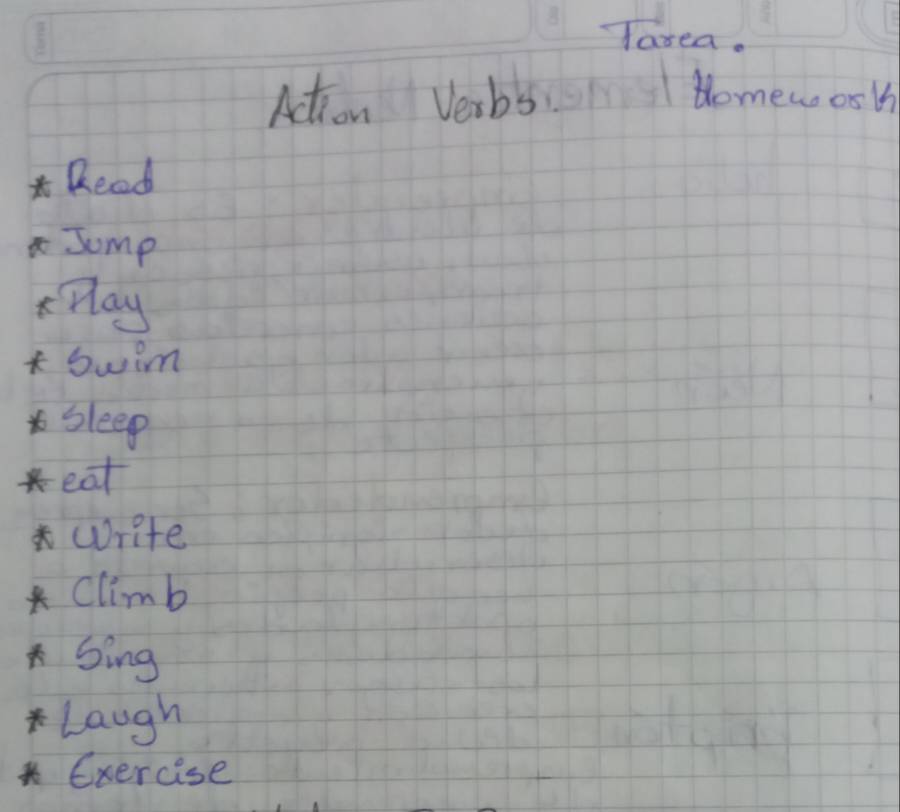 Tarea.
Action Verbs. Homework
* Read
* Jump
* Play
* Swim
* Sleep
* eat
* Write
* Climb
* Sing
* Laugh
* Exercise